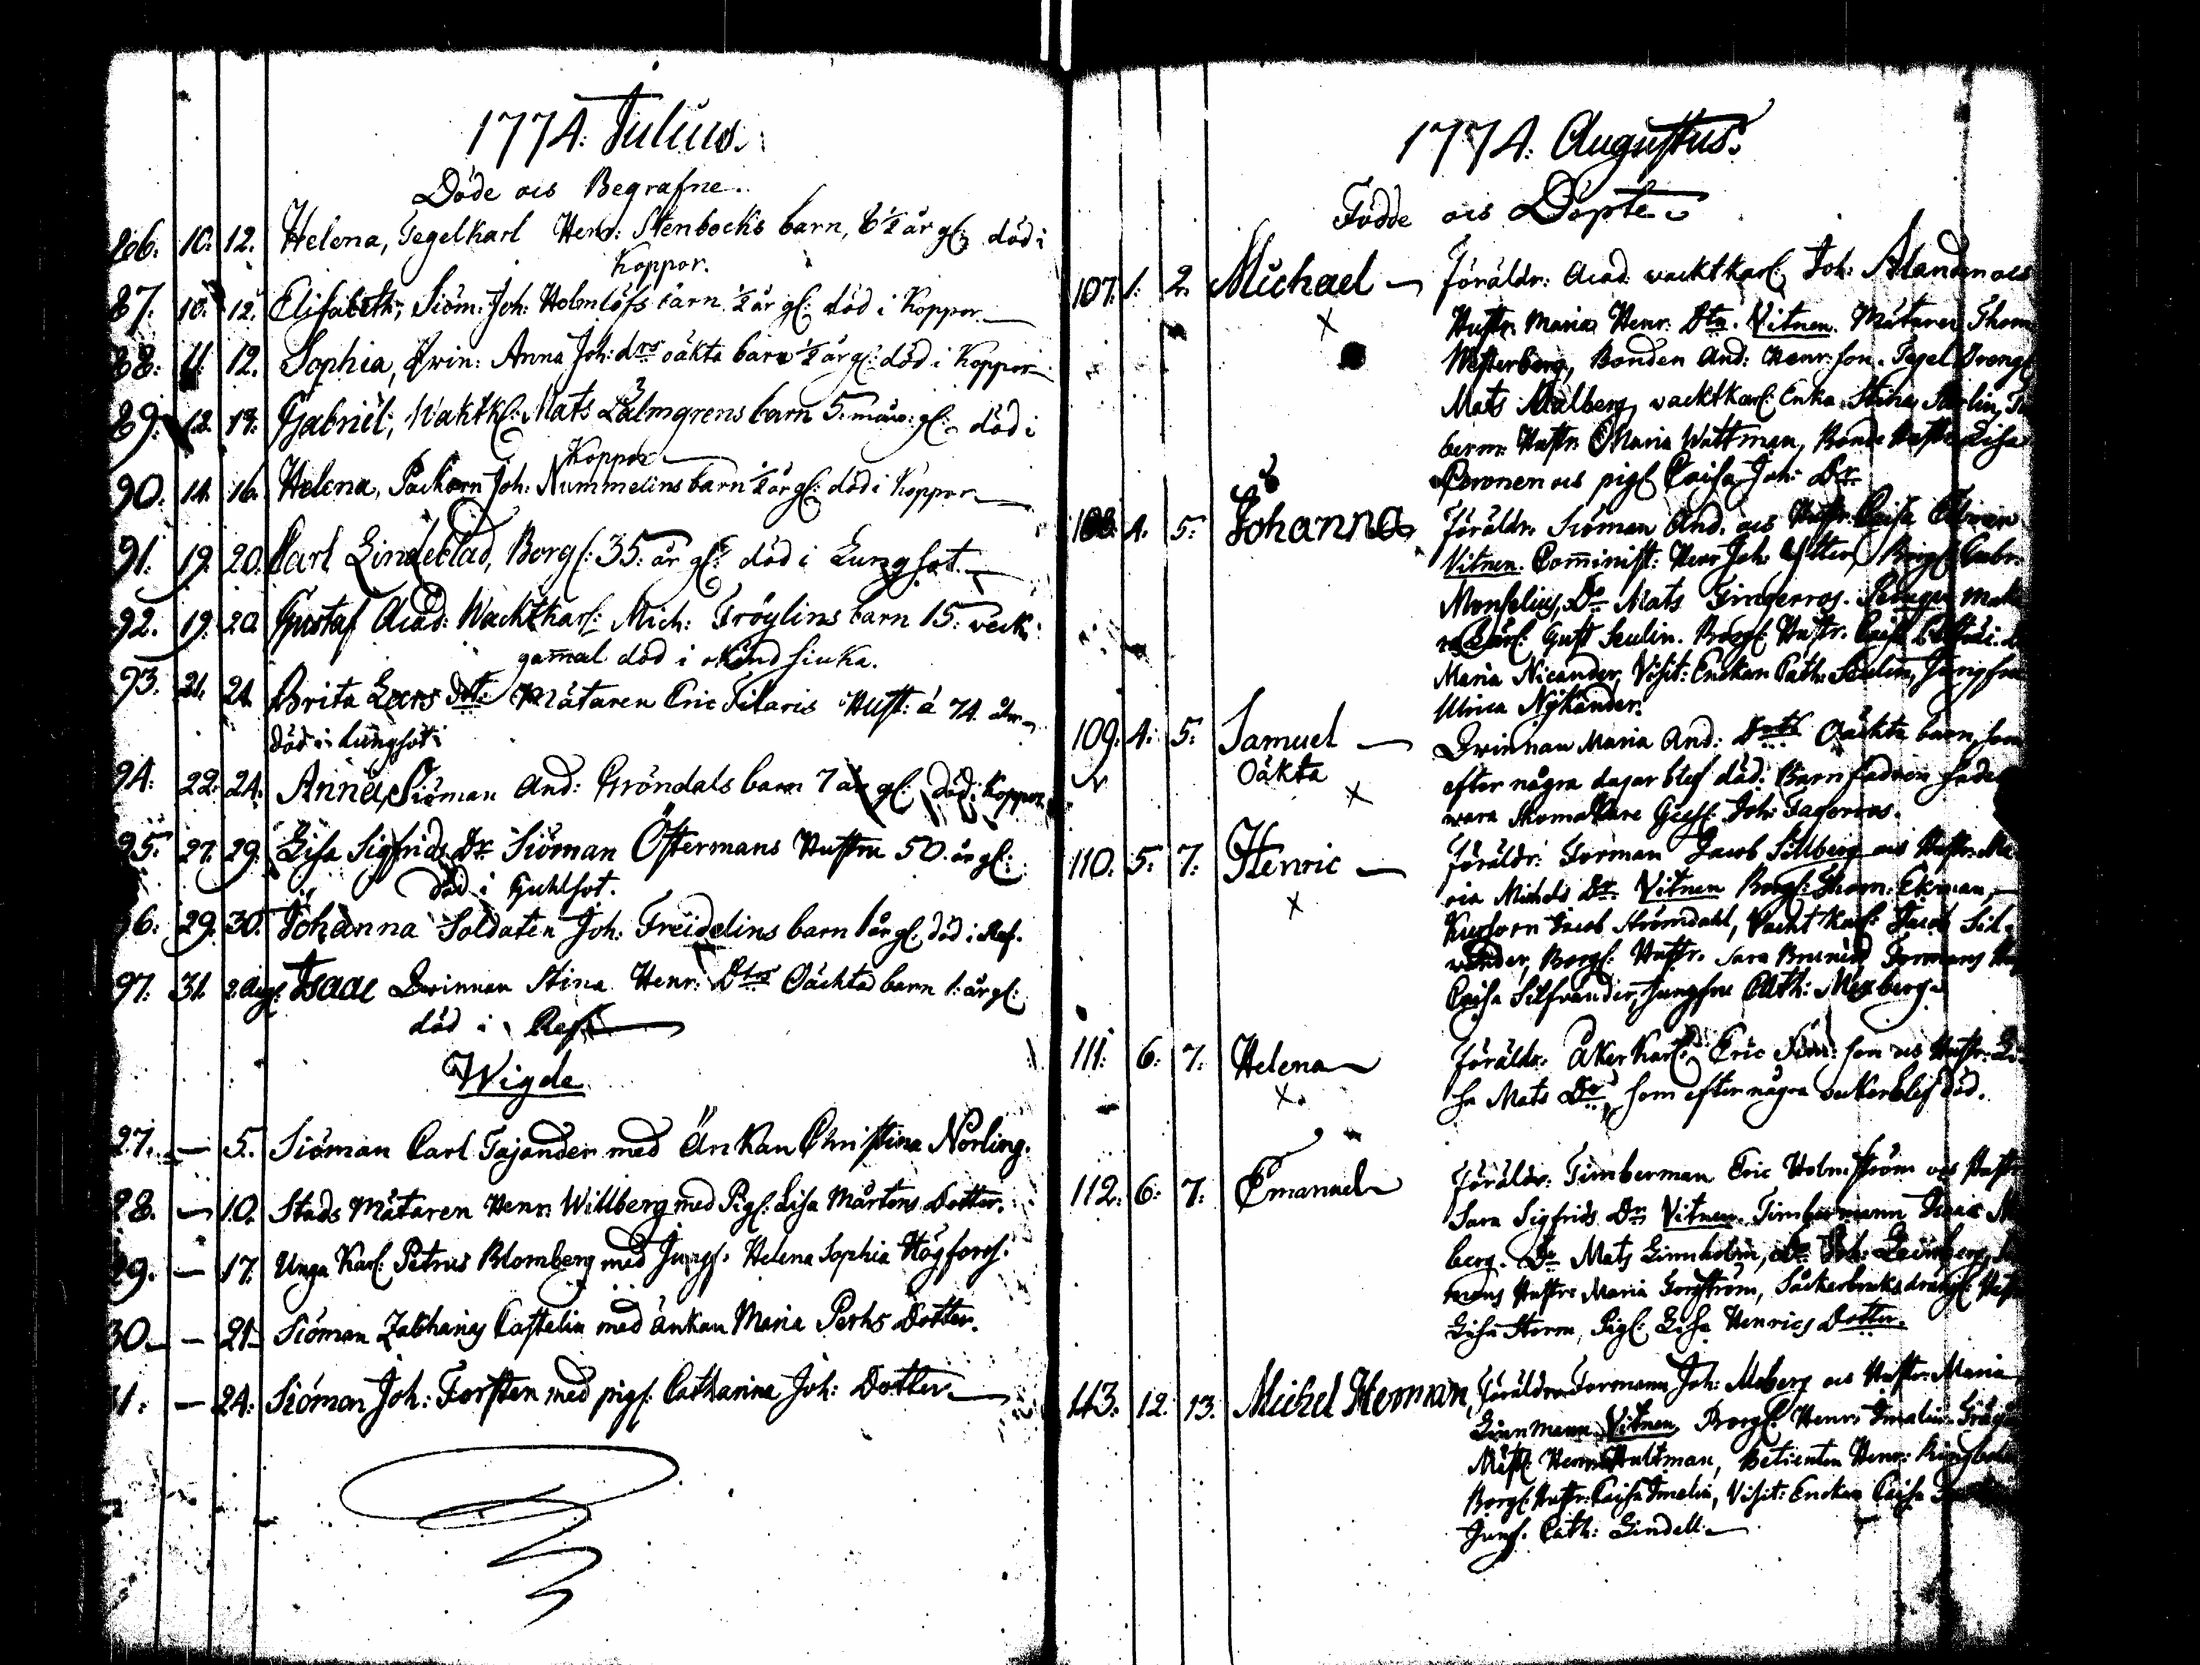 1774. Julius.
Döde ocs Begrafne.
86. 10. 12. Helena, Tegelkarl Henr: Stenbocks barn, 6½ år gl. död i
Koppor.
87. 10. 12. Elisabeth, Siöm: Joh: Holmlöfs barn ½ år gl: död i Koppor
88. 11. 12. Sophia, Qvin: Anna Joh: drs oäkta barn ½ år gl: död i Koppor
89. 12. 17. Gabriel, Waktkl: Mats Lälmgrens barn 5 mån: gl: död i
Koppor
90. 14. 16. Helena, Joh: Nummelins barn ½ år gl: död i Koppor
91. 19. 20. Carl Lindeblad, Borgl: 35. år gl: död i Lungsot.
92. 19. 20. Gustaf Acad: Wacktkarl: Mich: Fröylins barn 15. veck:
gammal död i okänd siuka.
93. 21. 24. Brita Lars Dt: Mätaren Eric Silaris Hust: á 74. år
död i Lungsot:
94. 22. 24. Anna, Siöman And: Gröndals barn 7 år gl: död i Koppor
95. 27. 29. Lisa Sigfrids Dr Siöman Östermans Hustru 50. år gl:
död i Guhlsot.
96. 29. 30. Johanna Soldaten Joh: Freidelins barn 1 år gl. död i Ref.
97. 31. 2 Aug: Isaac Qvinnan Stina Henr: Dtrs Oächta barn 1: år gl:
död i Ref.
Wigde
27. — 5. Siöman Carl Tajander med Änkan Christina Norling.
28. — 10. Stads Mätaren Henr: Willberg med Pigl: Lisa Mårtens Dotter.
29. — 17. Unga Karl: Petrus Blomberg med Jungf: Helena Sophia Högfors.
30. — 21. Siöman Zacharias Castelin med änkan Maria Pehrs Dotter.
31. — 24. Siöman Joh: Forsten med pigl: Catharina Joh: Dotter
1774. Augustus.
Födde ocs Döpte
107. 1. 2. Michael — Föräldr: Acad: wacktkarl: Joh: Alandm ocs
Hustr. Maria Henr: Dtr. Vitnen. Mätaren Thom
Westerberg, Bonden And: Henr: son. Tegel Drengl
Mats Malberg, wacktkarl: Enka Stina
berm: Hustr: Maria Wattman, Bonde Hustr Lisa
ocs pigl Caisa Joh: Dr
108. 4. 5. Johanna Föräldr. Siöman And. ocs Hustr: Caisa
Vitnen. Comminist: Herr Joh: Borgl: Gabr.
Monselius, Do Mats Gingerros.
Gust Seulin. Borgl: Hustr. Caisa
Maria Nicander, Visit: Enckan Cath: Seulin, Jungfru
Ulrica Nykänder.
109. 4. 5. Samuel — Qvinnan Maria And: Drts Oäckta barn, som
Oäkta efter några dagar blef död. Barnfadren sades
wara Skomakare Gesl: Joh: Fagerroos.
110. 5. 7. Henric — Föräldr: Forman Jacob Sillberg ocs Hustr. Ma
ria Michels Dr Vitnen Borgl: Thom: Ekman,
Jacob Strömdahl, Vackt Karl: Jacob Sil-
vander, Borgl: Hustr. Sara Formans
Caisa Silfvander, Jungfru Cath: Mexberg.
111. 6. 7. Helena Föräldr. Åker Karl: Eric Sim: son ocs Hustr. Li
sa Mats Dr, som efter några veckor blef död.
112. 6. 7. Emanuel Föräldr: Timberman Eric Holmström ocs Hustr
Sara Sigfrids Dr Vitnen. Timbermann Isaac
berg. Do Mats Linnholm, Do Joh:
mans Hustr. Maria Bergström, Sockerbruks drängl: Hust
Lisa Storm, Pigl: Lisa Henrics Dotter.
113. 12. 13. Michel Herman, Föräldrar Formann Joh: Moberg ocs Hustr: Maria
Linnmann Vitnen Borgl: Henr: Imalin
Mäst: Herm: Hultman, Betienten Henr: Ringbohm
Borgl: Hustr: Caisa Imelin, Visit: Enckan Caisa
Jungf. Cath: Lindell.